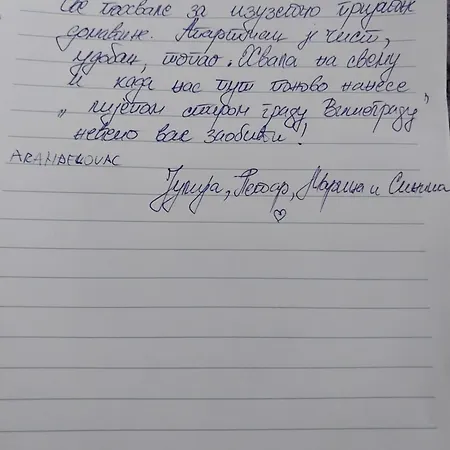 Све похвале за изузетно пријатне
домаћине. Апартман је чист,
удобан, топао. Хвала на свему
и када нас пут поново нанесе
„лијепом старом граду Вишеграду"
нећемо вас заобићи!
ARANĐELOVAC
Петар, Марија и
♡